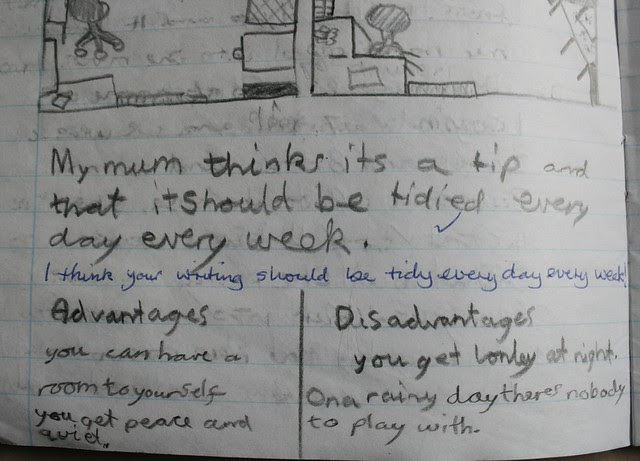 My mum thinks its a tip and
that it should be tidied every
day every week.
I think your writing should be tidy every day every week!
Advantages
you can have a
room to yourself
you get peace and
quiet.
Disadvantages
you get lonley at night.
On a rainy day theres nobody
to play with.